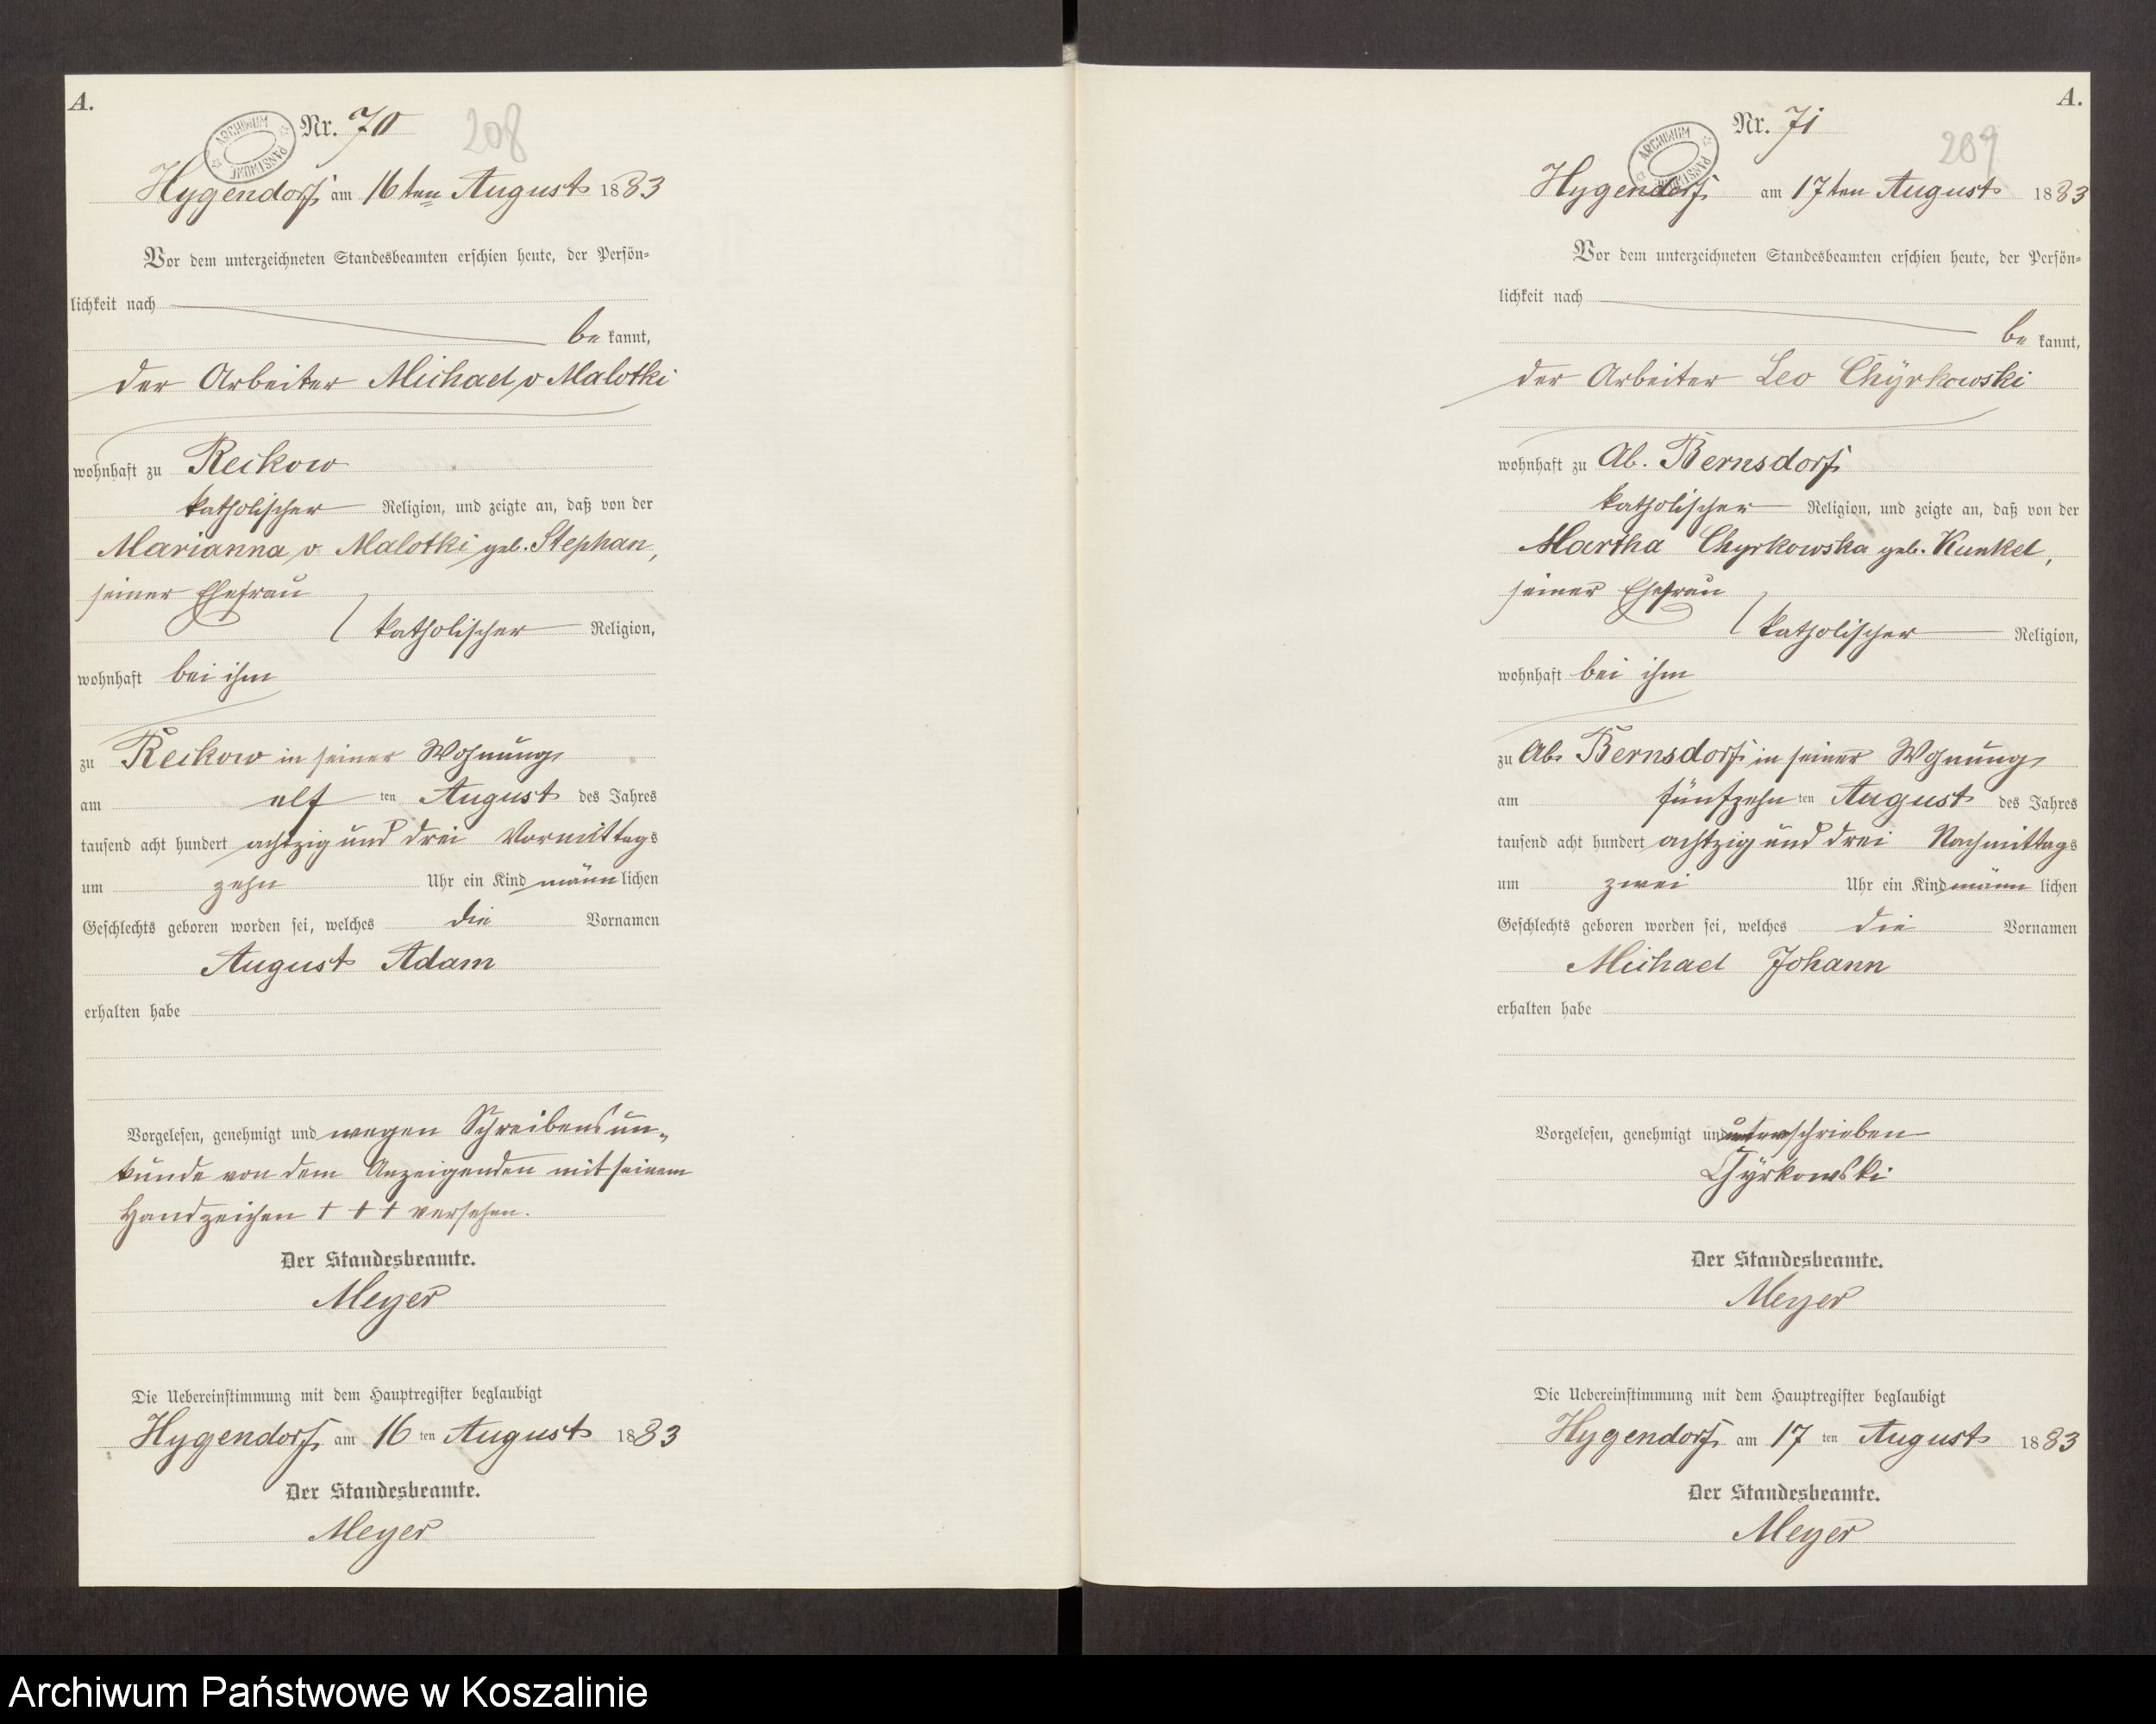 A.
Nr. 70
208
ARCHIWUM PAŃSTWOWE
Hygendorf am 16ten August 1883
Vor dem unterzeichneten Standesbeamten erschien heute, der Persön-
lichkeit nach
be kannt,
der Arbeiter Michael v Malotki
wohnhaft zu Reckow
katholischer Religion, und zeigte an, daß von der
Marianna v Malotki geb. Stephan,
seiner Ehefrau
katholischer Religion,
wohnhaft bei ihm
zu Reckow in seiner Wohnung
am elf ten August des Jahres
tausend acht hundert achtzig und drei Vormittags
um zehn Uhr ein Kind männlichen
Geschlechts geboren worden sei, welches die Vornamen
August Adam
erhalten habe
Vorgelesen, genehmigt und wegen Schreibensun-
kunde von dem Anzeigenden mit seinem
Handzeichen + + + versehen.
Der Standesbeamte.
Meyer
Die Uebereinstimmung mit dem Hauptregister beglaubigt
Hygendorf am 16 ten August 1883
Der Standesbeamte.
Meyer
A.
Nr. 71
209
ARCHIWUM PAŃSTWOWE
Hygendorf am 17ten August 1883
Vor dem unterzeichneten Standesbeamten erschien heute, der Persön-
lichkeit nach
be kannt,
der Arbeiter Leo Chÿrkowski
wohnhaft zu Ab. Bernsdorf
katholischer Religion, und zeigte an, daß von der
Martha Chyrkowska geb. Kunkel,
seiner Ehefrau
katholischer Religion,
wohnhaft bei ihm
zu Ab. Bernsdorf in seiner Wohnung
am fünfzehn ten August des Jahres
tausend acht hundert achtzig und drei Nachmittags
um zwei Uhr ein Kind männ lichen
Geschlechts geboren worden sei, welches die Vornamen
Michael Johann
erhalten habe
Vorgelesen, genehmigt und unterschrieben
Chÿrkowski
Der Standesbeamte.
Meyer
Die Uebereinstimmung mit dem Hauptregister beglaubigt
Hygendorf am 17 ten August 1883
Der Standesbeamte.
Meyer
Archiwum Państwowe w Koszalinie